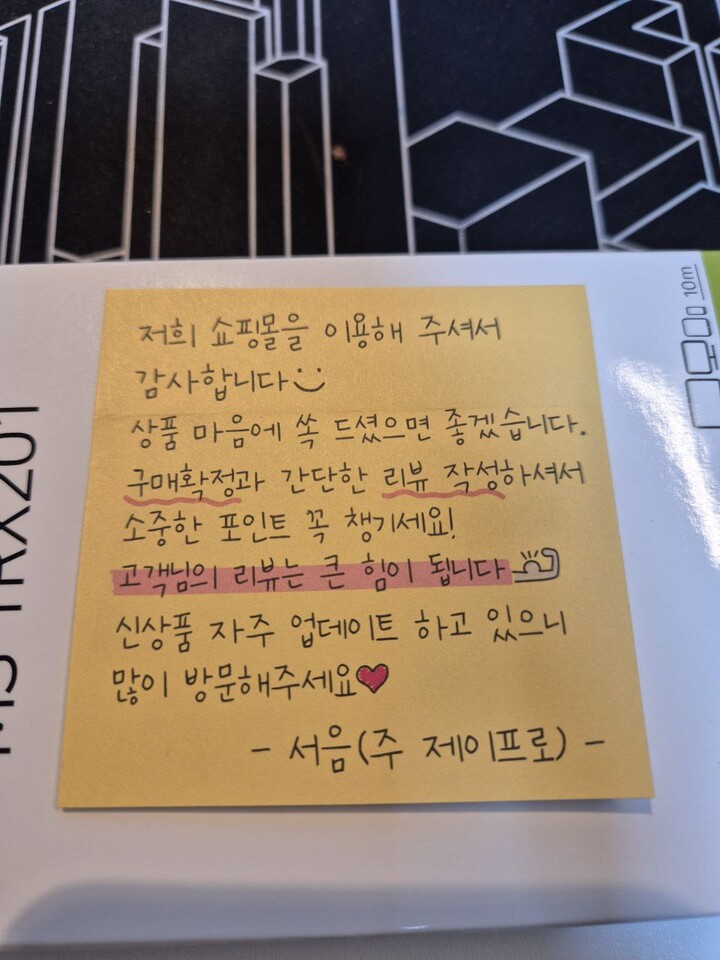 저희 쇼핑몰을 이용해 주셔서
감사합니다
상품 마음에 쏙 드셨으면 좋겠습니다.
구매확정과 간단한 리뷰 작성하셔서
소중한 포인트 꼭 챙기세요!
고객님의 리뷰는 큰 힘이 됩니다
신상품 자주 업데이트 하고 있으니
많이 방문해주세요
- 서음(주 제이프로) -
TRX201
10m